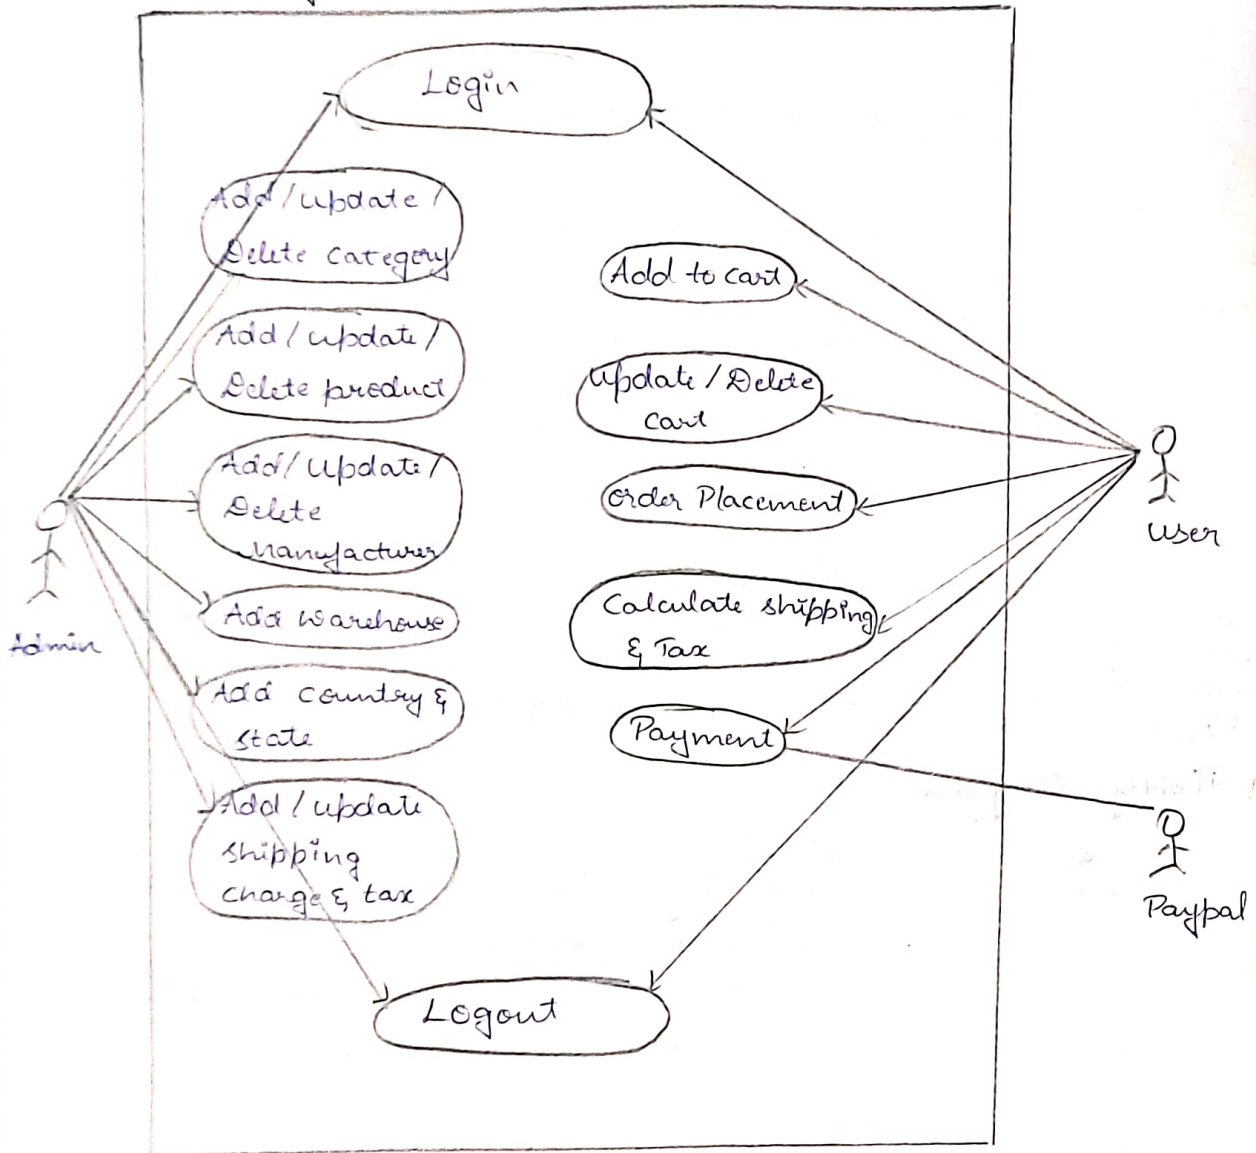 Login
Add/update/
Delete category
Add/update/
Delete product
Add/update/
Delete
manufacturer
Add warehouse
Add country &
state
Add/update
shipping
charge & tax
Admin
Add to cart
update/Delete
cart
order Placement
Calculate shipping
& Tax
Payment
User
Paypal
Logout